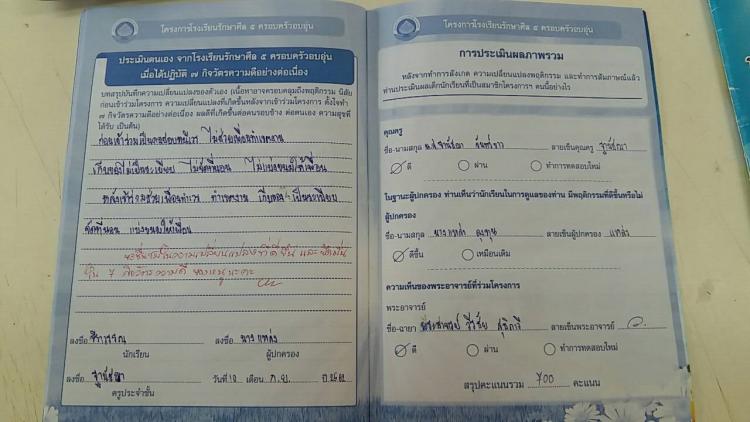 โครงการโรงเรียนรักษาศีล ๕ ครอบครัวอบอุ่น
ประเมินตนเอง จากโรงเรียนรักษาศีล ๕ ครอบครัวอบอุ่น
เมื่อได้ปฏิบัติ ๗ กิจวัตรความดีอย่างต่อเนื่อง
บทสรุปบันทึกความเปลี่ยนแปลงของตัวเอง (เนื้อหาอาจครอบคลุมถึงพฤติกรรม นิสัย
ก่อนเข้าร่วมโครงการ ความเปลี่ยนแปลงที่เกิดขึ้นหลังจากเข้าร่วมโครงการ ตั้งใจทำ
๗ กิจวัตรความดีอย่างต่อเนื่อง ผลดีที่เกิดขึ้นต่อคนรอบข้าง ต่อตนเอง ความสุขที่
ได้รับ เป็นต้น)
ก่อนเข้าร่วมเป็นคน ไม่ช่วยเพื่อนทำเวร
เก็บของไม่เป็นระเบียบ ไม่จัดที่นอน ไม่แบ่งขนมให้เพื่อน
หลังเข้าร่วมช่วยเพื่อนทำเวร เก็บของเป็นระเบียบ
จัดที่นอน แบ่งขนมให้เพื่อน
ขอชื่นชมในความเปลี่ยนแปลงที่ดีขึ้น และ
ใน 7 กิจวัตรความดี ของหนูนะคะ
ลงชื่อ ลงชื่อ นางแหล่ง
นักเรียน ผู้ปกครอง
ลงชื่อ วันที่ 10 เดือน ก.ย. ปี 2562
ครูประจำชั้น
โครงการโรงเรียนรักษาศีล ๕ ครอบครัวอบอุ่น
การประเมินผลภาพรวม
หลังจากทำการสังเกต ความเปลี่ยนแปลงพฤติกรรม และทำการสัมภาษณ์แล้ว
ท่านประเมินผลเด็กนักเรียนที่เป็นสมาชิกโครงการฯ คนนี้อย่างไร
คุณครู
ชื่อ-นามสกุล น.ส. ลายเซ็นคุณครู
ดี ผ่าน ทำการทดสอบใหม่
ในฐานะผู้ปกครอง ท่านเห็นว่านักเรียนในการดูแลของท่าน มีพฤติกรรมที่ดีขึ้นหรือไม่
ผู้ปกครอง
ชื่อ-นามสกุล นางแหล่ง ลายเซ็นผู้ปกครอง แหล่ง
ดีขึ้น เหมือนเดิม
ความเห็นของพระอาจารย์ที่ร่วมโครงการ
พระอาจารย์
ชื่อ-ฉายา พระอาจารย์ วีรชัย ลายเซ็นพระอาจารย์
ดี ผ่าน ทำการทดสอบใหม่
สรุปคะแนนรวม 700 คะแนน